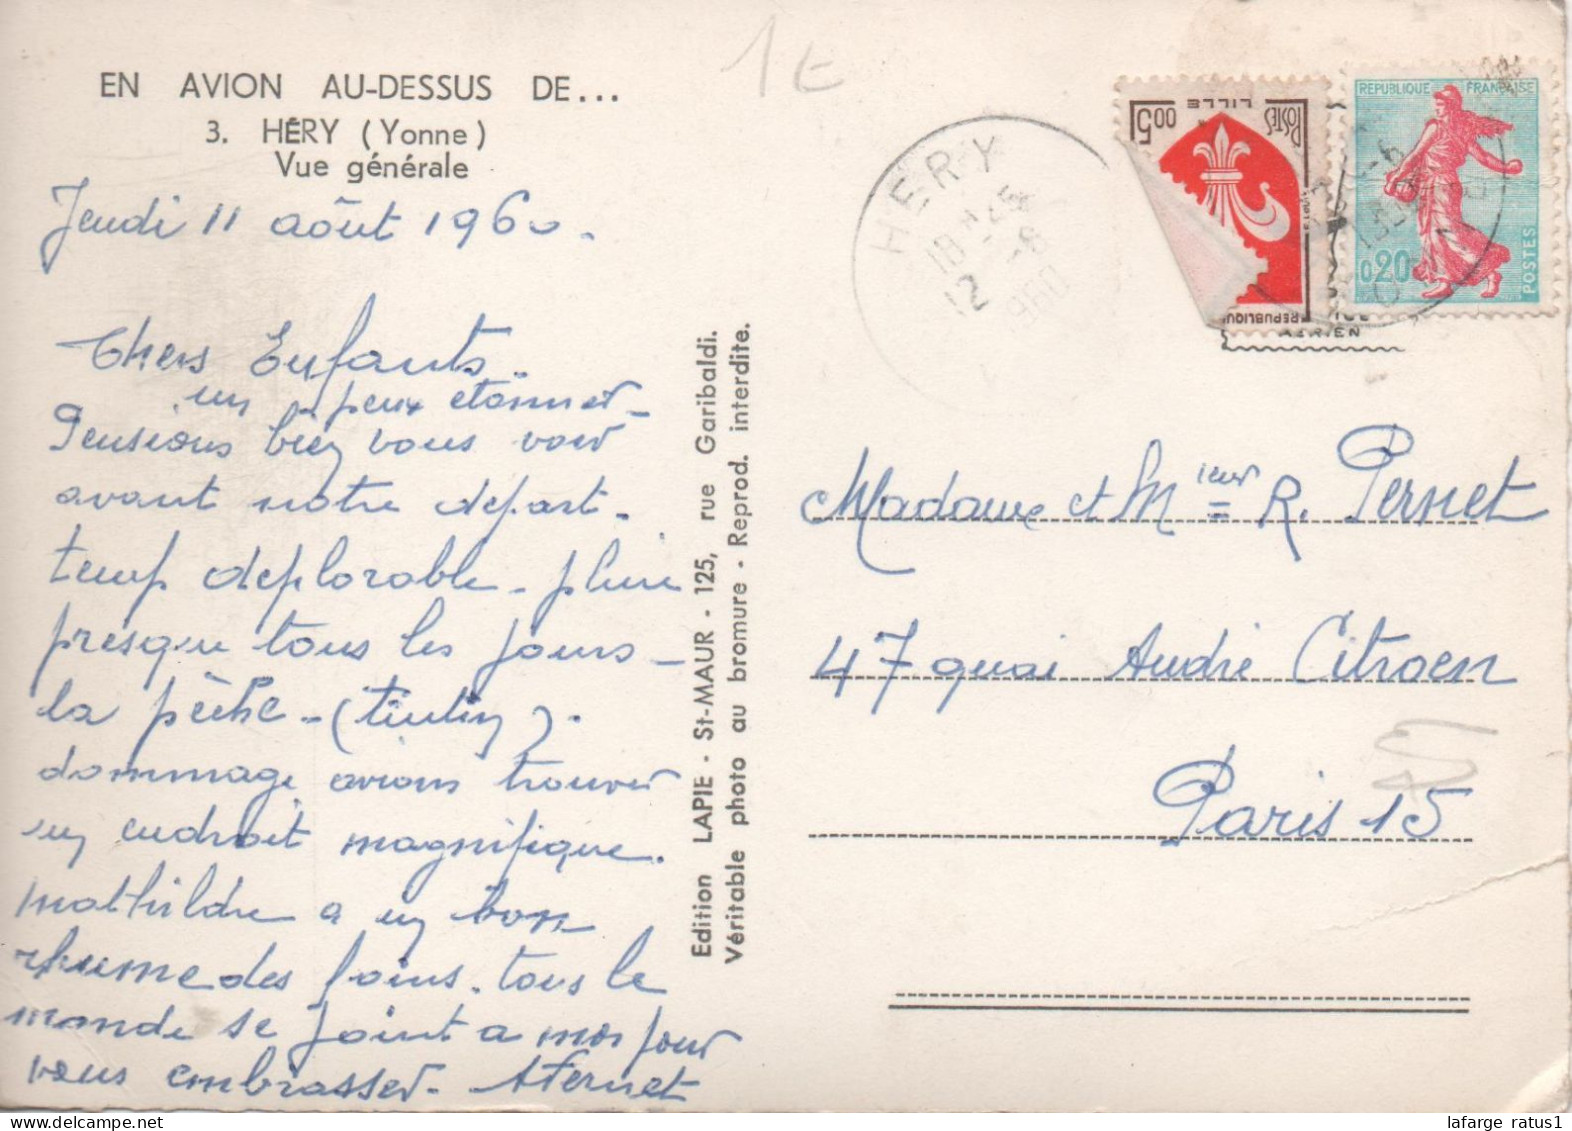 1 E
EN AVION AU-DESSUS DE...
3. HÉRY (Yonne)
Vue générale
Jeudi 11 août 1960.
Chers Enfants.
un peux etonner_
Pensions bien vous voir
avant notre depart.
temp deplorable _ pluie
presque tous les jours _
la pêche _ (tintin).
dommage avions trouver
un endroit magnifique.
Mathilde a un bon
rhume des foins. tous le
monde se joint a moi pour
vous embrasser. A Pernet
Edition LAPIE - St-MAUR - 125, rue Garibaldi.
Véritable photo au bromure - Reprod. interdite.
HERY
18 H 45
12 -8
1960
5.00
POSTES
LILLE
REPUBLIQUE
AERIEN
REPUBLIQUE FRANÇAISE
0,20
POSTES
Madame et Mieur R. Pernet
47 quai André Citroen
Paris 15
lafarge ratus1